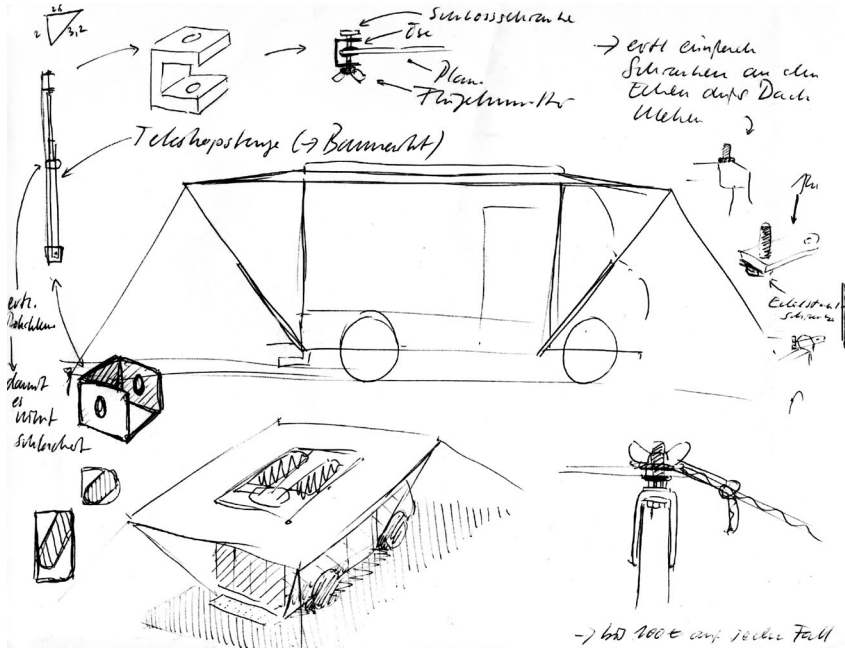 2
3,2
Schlossschraube
Öse
Plane
Flügelmutter
→ evtl einfach
Schrauben an den
Ecken aufs Dach
kleben
Teleskopstange (→ Baumarkt)
evtl.
damit
es
nicht
schlackert
Edelstahl
schraube
→ bis 100 € auf jeden Fall